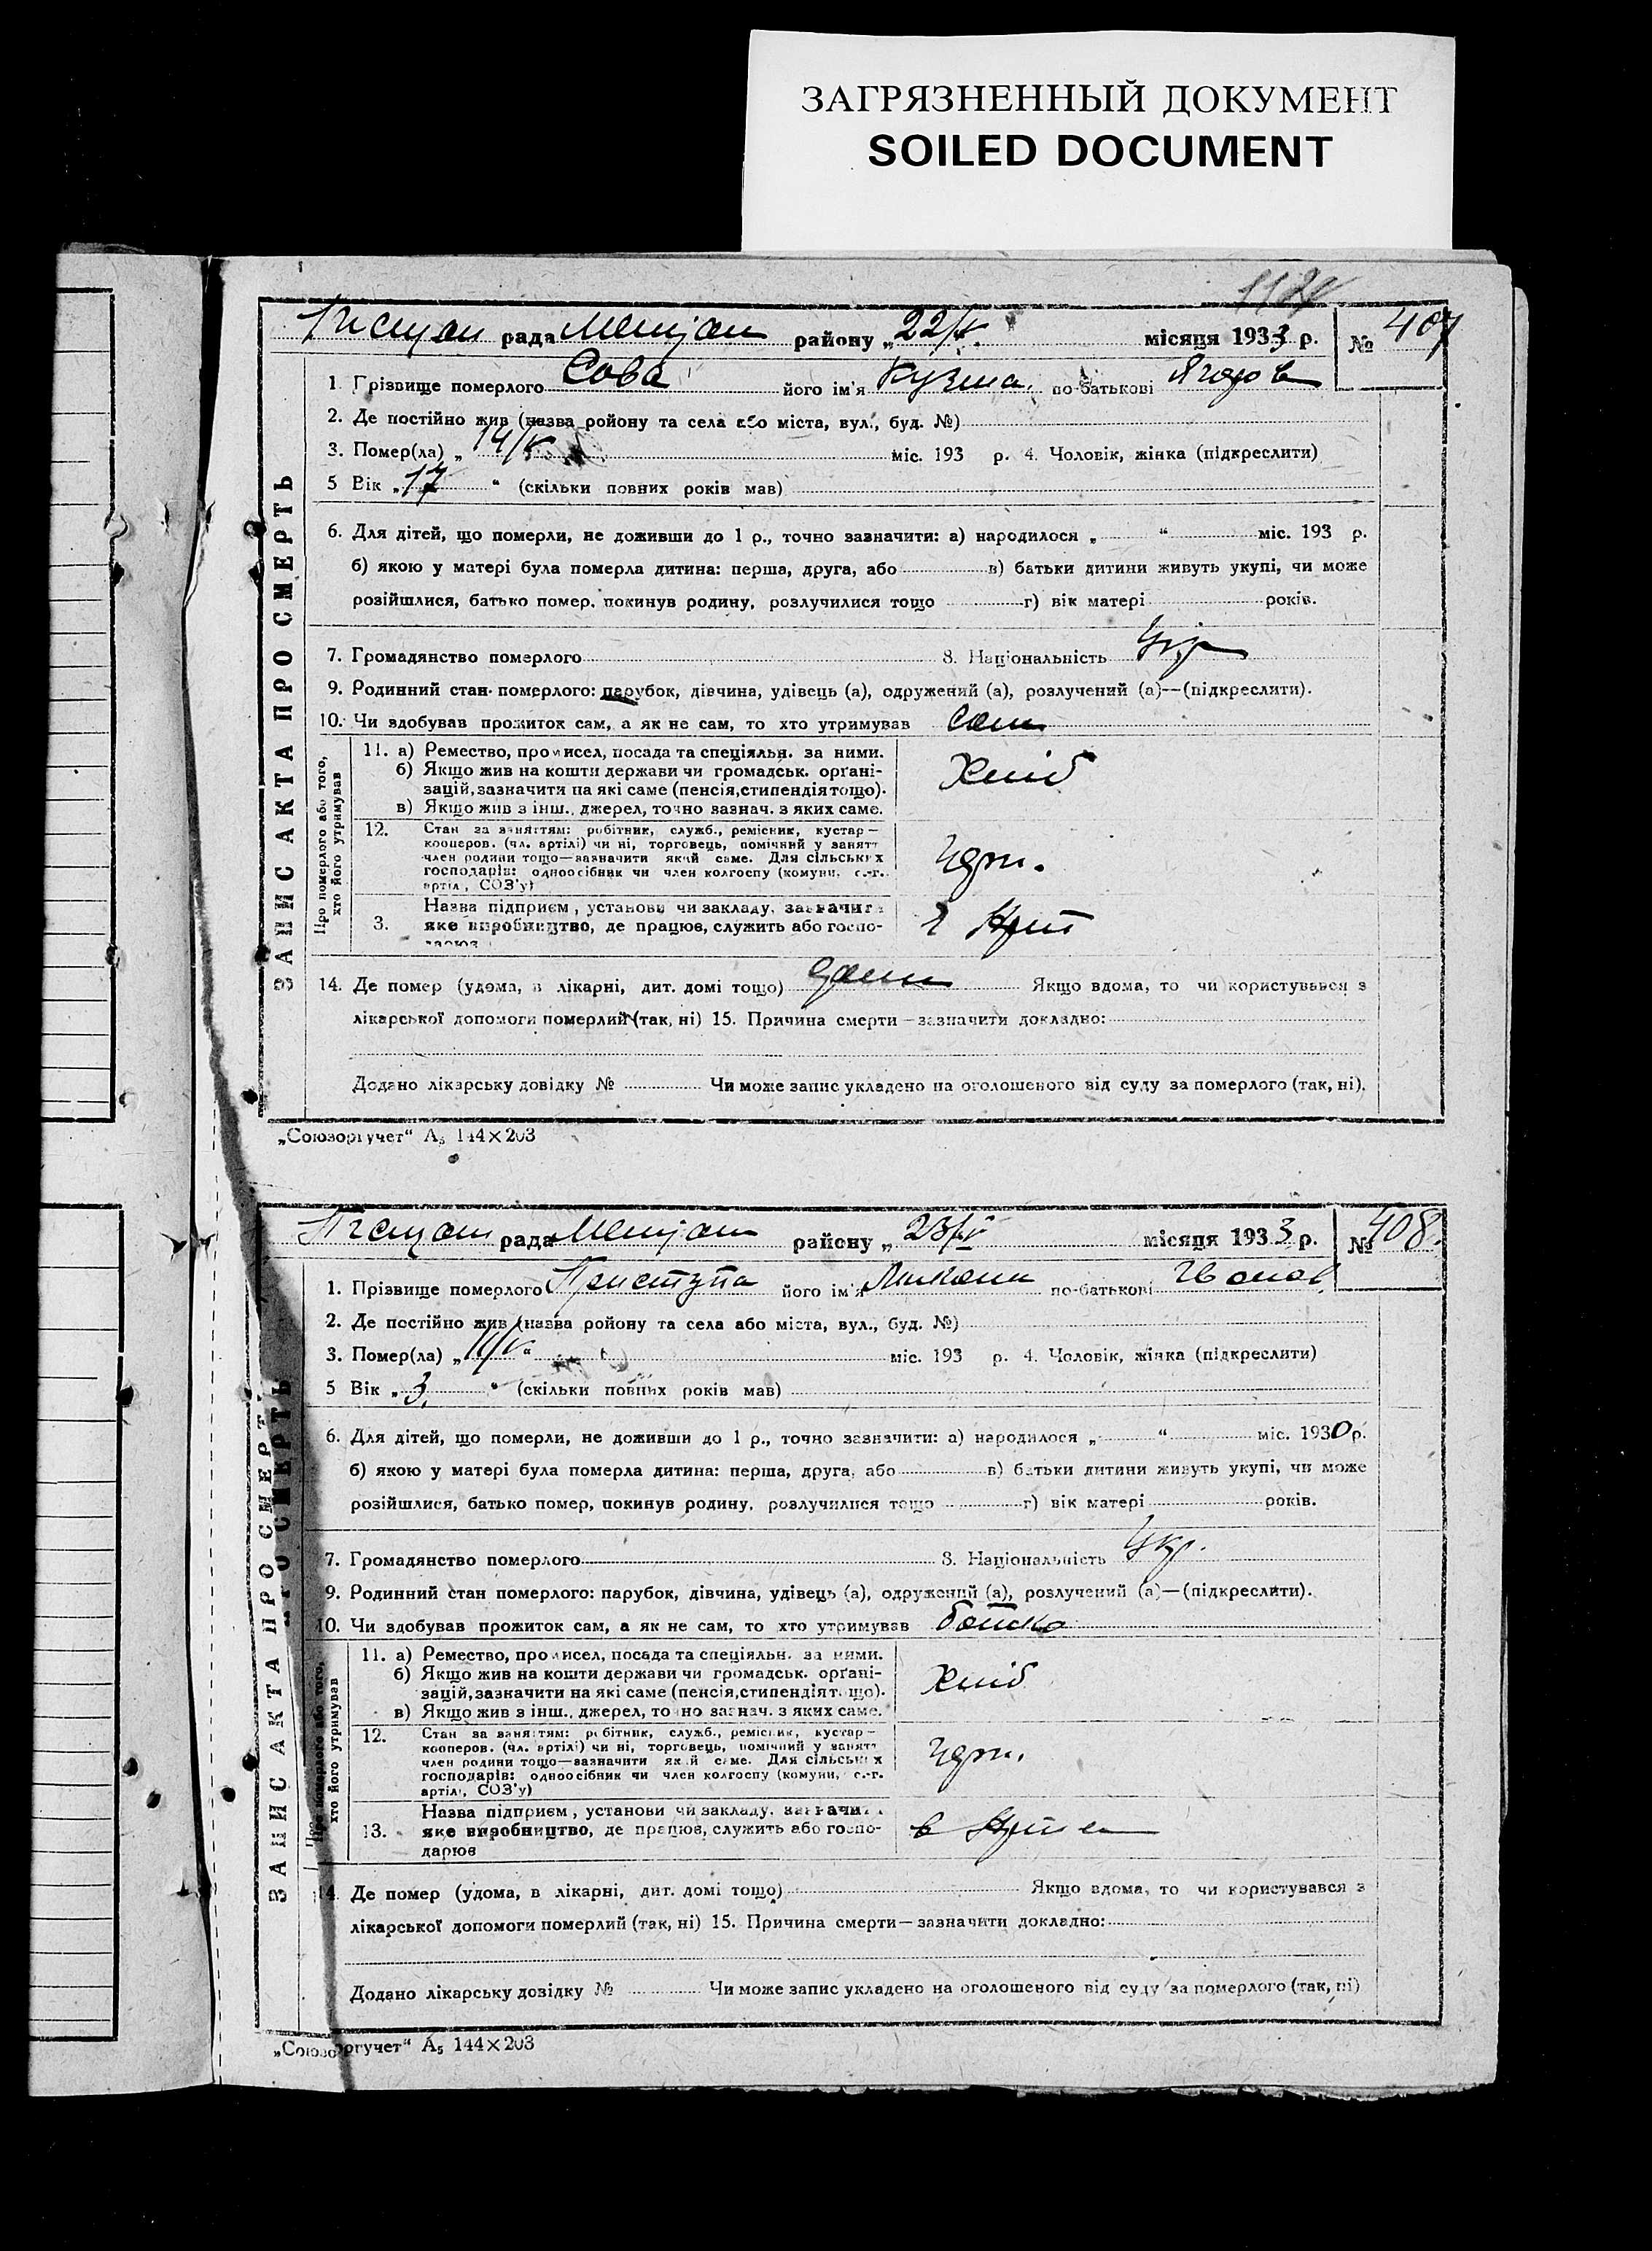 ЗАГРЯЗНЕННЫЙ ДОКУМЕНТ
SOILED DOCUMENT
рада район у „22/V. місяця 1933 р. № 407
ЗАПИС АКТА ПРО СМЕРТЬ
1 Грізвище померлого Сова його ім'я Кузьма. по-батькові
2. Де постійно жив (назва ройону та села або міста, вул., буд. №)
3. Помер(ла) „ 14/V міс. 193 р. 4. Чоловік, жінка (підкреслити)
5 Вік „ 17 “ (скільки повних років мав)
6. Для дітей, що померли, не доживши до 1 р., точно зазначити: а) народилося „ “ міс. 193 р.
б) якою у матері була померла дитина: перша, друга, або в) батьки дитини живуть укупі, чи може
розійшлися, батько помер, покинув родину, розлучилися тощо г) вік матері років.
7. Громадянство померлого 8. Національність Укр
9. Родинний стан померлого: парубок, дівчина, удівець (а), одружений (а), розлучений (а)—(підкреслити).
10. Чи здобував прожиток сам, а як не сам, то хто утримував сам
Про померлого або того, хто його утримував
11. а) Ремество, промисел, посада та спеціяльн. за ними.
б) Якщо жив на кошти держави чи громадськ. орґані-
зацій, зазначити на які саме (пенсія, стипендія тощо).
в) Якщо жив з інш., джерел, точно зазнач. з яких саме.
Хліб
12. Стан за заняттям: робітник, служб., ремісник, кустар—
кооперов. (чл. артілі) чи ні, торговець, помічний у занятт
член родини тощо—зазначити який саме. Для сільських
господарів: одноосібник чи член колгоспу (комуни, с.-г.
артіл, СОЗ'у)
3. Назва підприєм, установи чи закладу, зазначити
яке виробництво, де працює, служить або госпо-
дарює
14. Де помер (удома, в лікарні, дит. домі тощо) дома Якщо вдома, то чи користувався з
лікарської допомоги померлий (так, ні) 15. Причина смерти—зазначити докладно:
Додано лікарську довідку № Чи може запис укладено на оголошеного від суду за померлого (так, ні).
„Союзоргучет“ А₅ 144×203
рада району „ 23/V місяця 1933 р. № 408.
ЗАПИС АКТА ПРО СМЕРТЬ
1. Прізвище померлого Приступа його ім'я по-батькові Іванов
2. Де постійно жив (назва ройону та села або міста, вул., буд. №)
3. Помер(ла) „ 11/V “ міс. 193 р. 4. Чоловік, жінка (підкреслити)
5 Вік „ 3. “ (скільки повних років мав)
6. Для дітей, що померли, не доживши до 1 р., точно зазначити: а) народилося „ “ міс. 1930 р.
б) якою у матері була померла дитина: перша, друга, або в) батьки дитини живуть укупі, чи може
розійшлися, батько помер, покинув родину, розлучилися тощо г) вік матері років.
7. Громадянство померлого 8. Національність Укр.
9. Родинний стан померлого: парубок, дівчина, удівець (а), одружений (а), розлучений (а)—(підкреслити).
10. Чи здобував прожиток сам, а як не сам, то хто утримував батько
Про померлого або того, хто його утримував
11. а) Ремество, промисел, посада та спеціяльн. за ними.
б) Якщо жив на кошти держави чи громадськ. орґані-
зацій, зазначити на які саме (пенсія, стипендія т. що).
в) Якщо жив з інш., джерел, точно зазнач. з яких саме.
Хліб
12. Стан за заняттям: робітник, служб., ремісник, кустар—
кооперов. (чл. артілі) чи ні, торговець, помічний у занятт
член родини тощо—зазначити який саме. Для сільських
господарів: одноосібник чи член колгоспу (комуни, с.-г.
артілі, СОЗ'у)
13. Назва підприєм, установи чи закладу, зазначити
яке виробництво, де працює, служить або госпо-
дарює
14. Де помер (удома, в лікарні, дит. домі тощо) Якщо вдома, то чи користувався з
лікарської допомоги померлий (так, ні) 15. Причина смерти—зазначити докладно:
Додано лікарську довідку № Чи може запис укладено на оголошеного від суду за померлого (так, ні)
„Союзоргучет“ А₅ 144×203